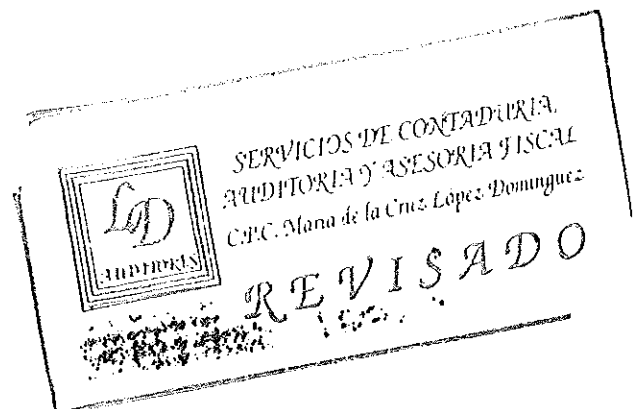 LD
AUDITORES
SERVICIOS DE CONTADURIA,
AUDITORIA Y ASESORIA FISCAL
C.P.C. Maria de la Cruz López Dominguez
REVISADO